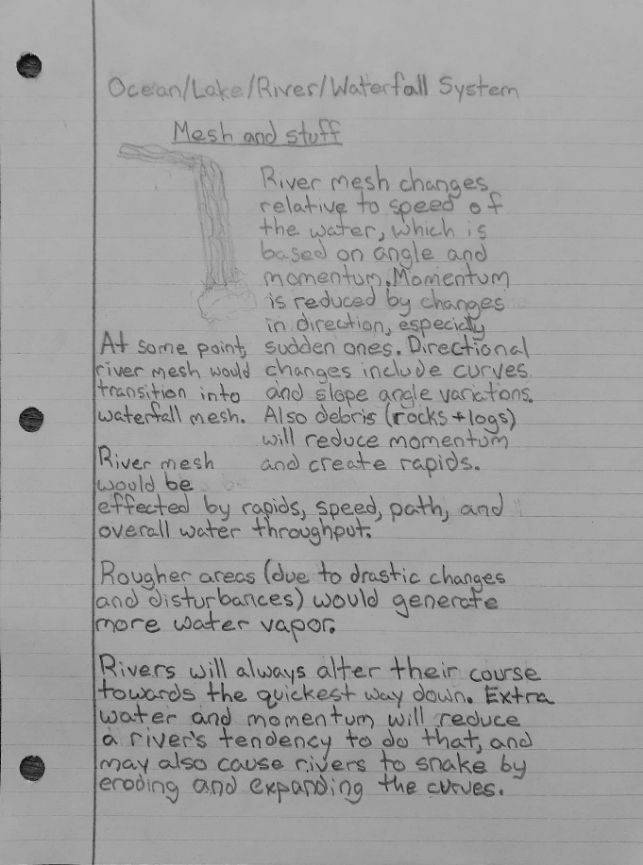 Ocean/Lake/River/Waterfall System
Mesh and stuff
River mesh changes
relative to speed of
the water, which is
based on angle and
momentum. Momentum
is reduced by changes
in direction, especialy
sudden ones. Directional
changes include curves
and slope angle variations.
Also debris (rocks + logs)
will reduce momentum
and create rapids.
At some point,
river mesh would
transition into
waterfall mesh.
River mesh
would be
effected by rapids, speed, path, and
overall water throughput.
Rougher areas (due to drastic changes
and disturbances) would generate
more water vapor.
Rivers will always alter their course
towards the quickest way down. Extra
water and momentum will reduce
a river's tendency to do that, and
may also cause rivers to snake by
eroding and expanding the curves.